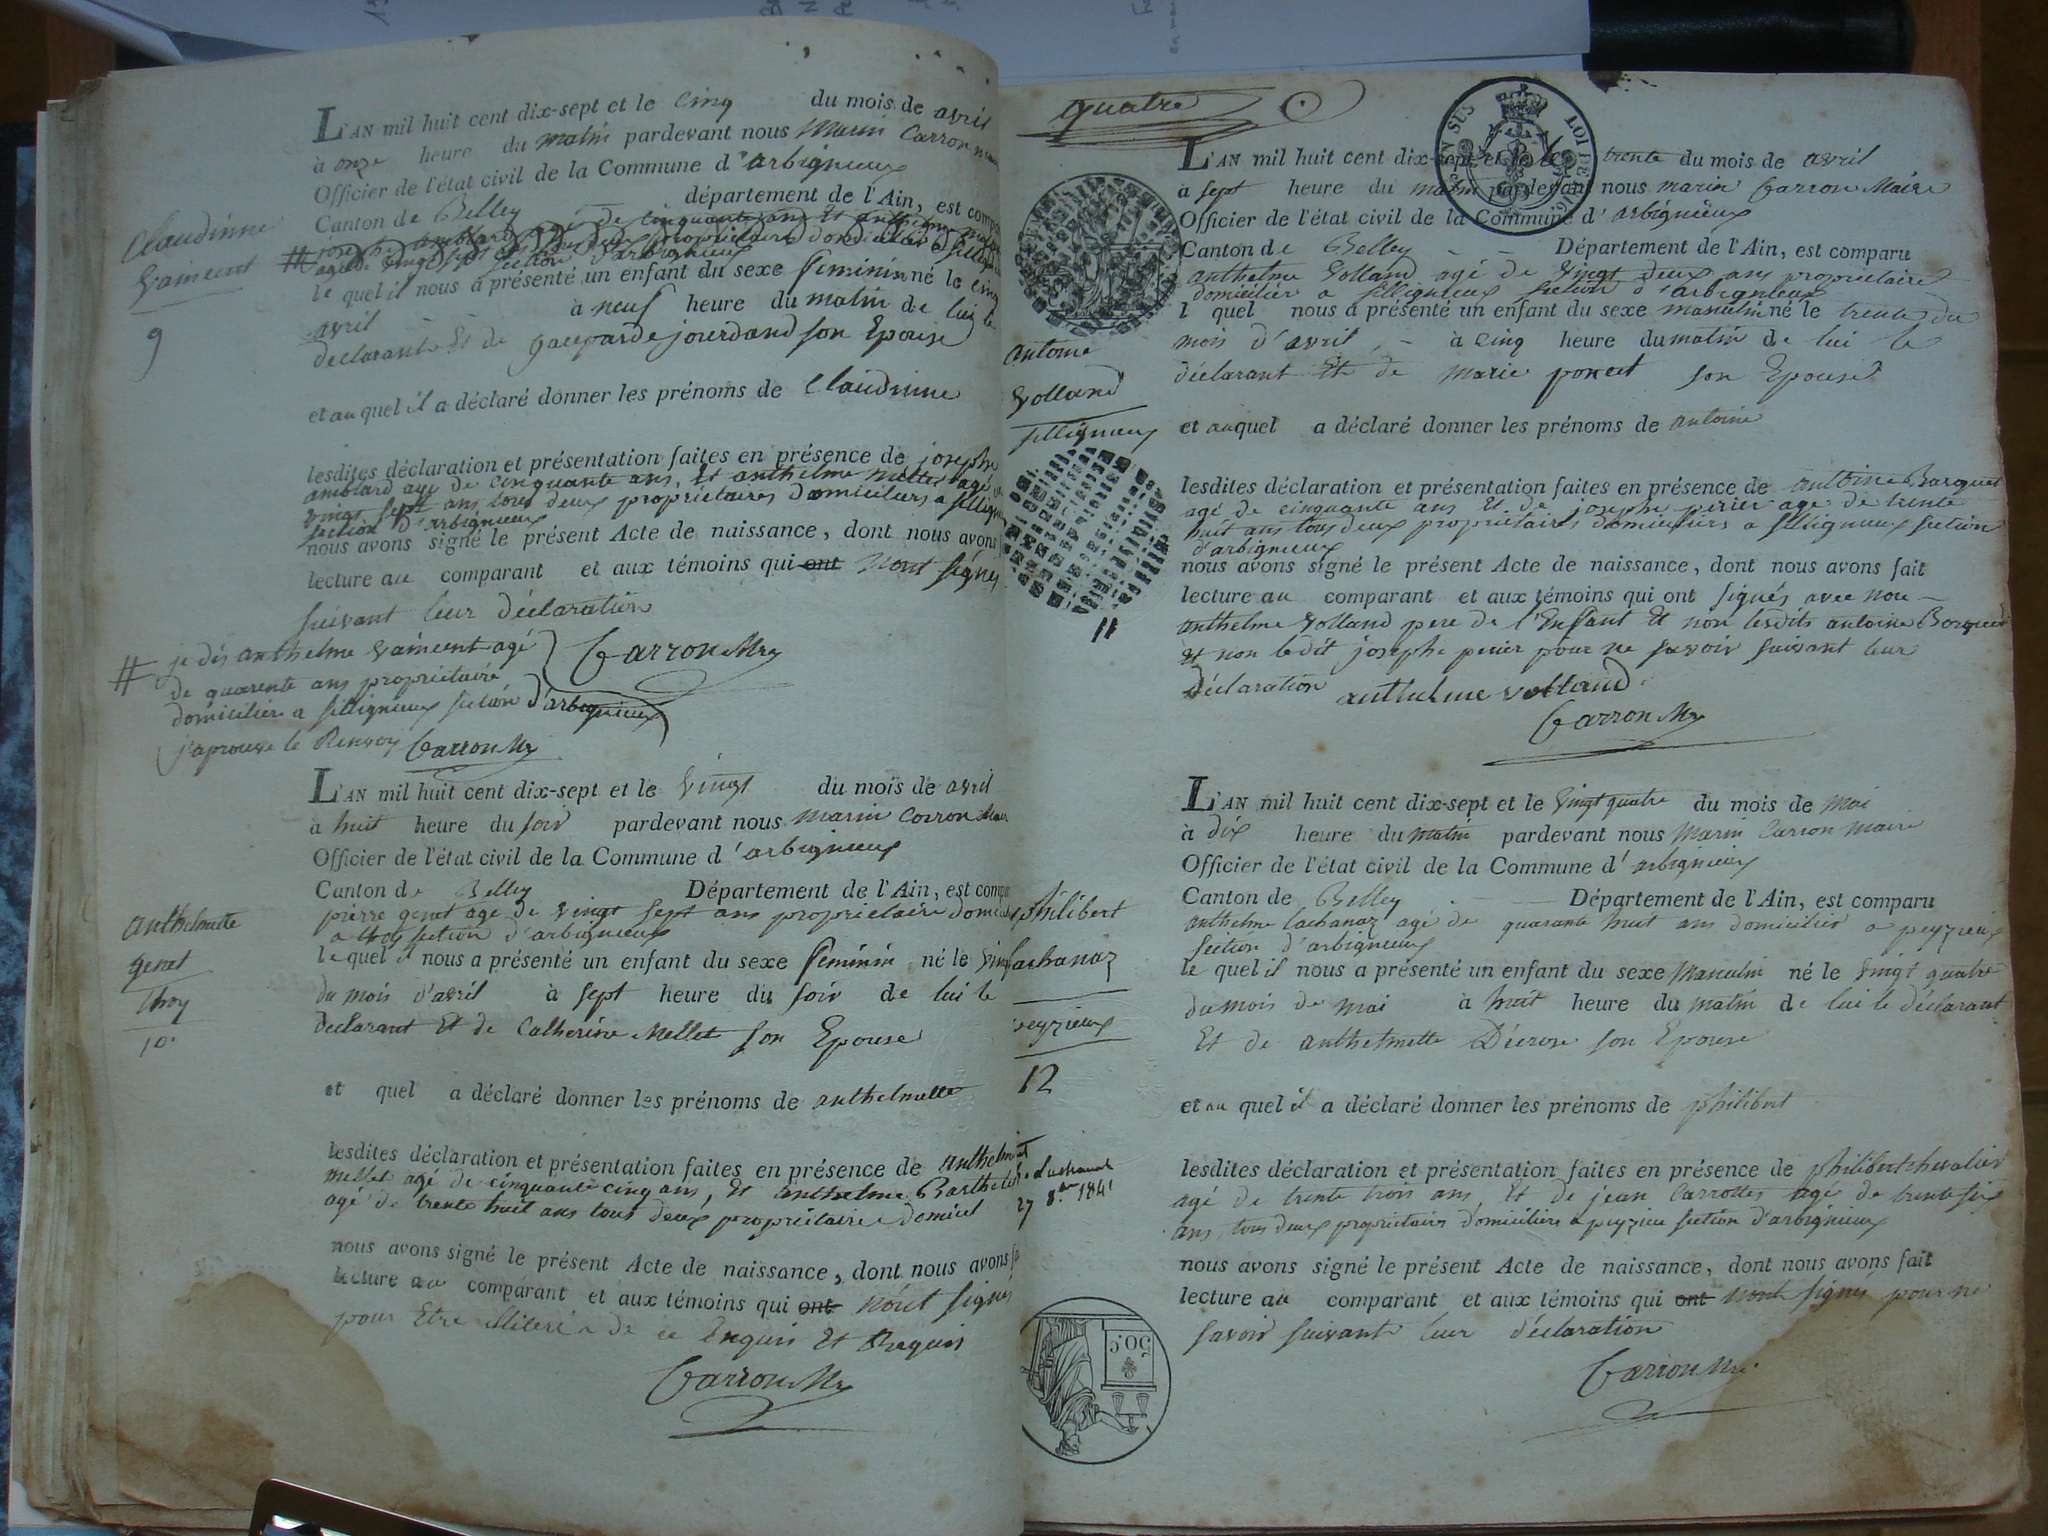 Claudinne
Vaincent
9
L'AN mil huit cent dix-sept et le cinq du mois de avril
à onze heure du matin pardevant nous Marin Carron
Officier de l'état civil de la Commune d'arbignieux
Canton de Belley département de l'Ain, est comp
# joseph amblard agé de cinquante ans Et anthelme
agé de vingt sept section d'arbignieux
le quel il nous a présenté un enfant du sexe feminin né le cinq
avril à neuf heure du matin de lui le
declarant Et de gasparde jourdand son Epouse
et au quel il a déclaré donner les prénoms de Claudinne
lesdites déclaration et présentation faites en présence de josephe
amblard agé de cinquante ans, Et anthelme millet agé de
vingt sept ans tous deux propriétaires domiciliers a sillignieux
section d'arbignieux
nous avons signé le présent Acte de naissance, dont nous avons
lecture au comparant et aux témoins qui ont n'ont signés
suivant leur déclaration
# je dis anthelme vaincent agé
de quarente ans propriétaire
domicilier a sillignieux section d'arbignieux
j'aprouve le Renvoy Carron Mre
Carron Mre
anthelmette
genet
thoy
10.
L'AN mil huit cent dix-sept et le vingt du mois de avril
a huit heure du soir pardevant nous Marin Carron Maire
Officier de l'état civil de la Commune d'arbignieux
Canton de Belley Département de l'Ain, est comp
pierre genet agé de vingt sept ans propriétaire domicil
a thoy section d'arbignieux
le quel il nous a présenté un enfant du sexe feminin né le vingt
du mois d'avril à sept heure du soir de lui le
declarant Et de Catherine Mellet son Epouse
et quel a déclaré donner les prénoms de anthelmette
lesdites déclaration et présentation faites en présence de anthelme
mellet agé de cinquante cinq ans, Et anthelme Barthelet
agé de trente huit ans tous deux propriétaire domicil
nous avons signé le présent Acte de naissance, dont nous avons f
lecture au comparant et aux témoins qui ont n'ont signés
pour Etre illiteré a de ce Enquis Et Requis
Carron Mre
quatre
SUS
LOI DE
antoine
Volland
sillignieux
11
L'AN mil huit cent dix-sept et le trente du mois de avril
a sept heure du matin pardevant nous marin Carron Maire
Officier de l'état civil de la Commune d'arbignieux
Canton de Belley Département de l'Ain, est comparu
anthelme Volland agé de vingt deux ans propriétaire
domicilier a silligneux section d'arbignieux
l quel nous a présenté un enfant du sexe masculin né le trente du
mois d'avril à cinq heure du matin de lui le
déclarant Et de marie poncet son Epouse
et auquel a déclaré donner les prénoms de antoine
lesdites déclaration et présentation faites en présence de antoine Barquet
agé de cinquante ans Et de josephe perier agé de trente
huit ans tous deux propriétaires domiciliers a silligneux section
d'arbignieux
nous avons signé le présent Acte de naissance, dont nous avons fait
lecture au comparant et aux témoins qui ont signés avec nou
anthelme Volland pere de l'Enfant Et non lesdits antoine Barquet
Et non ledit josephe perier pour ne savoir suivant leur
déclaration anthelme volland
Carron Mre
philibert
Lachanaz
peyzieux
12
27 8.bre 1841
50c
L'AN mil huit cent dix-sept et le vingt quatre du mois de mai
à dix heure du matin pardevant nous Marin Carron maire
Officier de l'état civil de la Commune d'arbignieux
Canton de Belley Département de l'Ain, est comparu
anthelme Lachanaz agé de quarante huit ans domicilier a peyzieux
section d'arbignieux
le quel il nous a présenté un enfant du sexe Masculin né le vingt quatre
du mois de mai à huit heure du matin de lui le déclarant
Et de anthelmette Décrose son Epouse
et au quel il a déclaré donner les prénoms de philibert
lesdites déclaration et présentation faites en présence de philibert chevalier
agé de trente trois ans, Et de jean Carrottes agé de trente six
ans, tous deux propriétaires domiciliers a peyzieu section d'arbignieux
nous avons signé le présent Acte de naissance, dont nous avons fait
lecture au comparant et aux témoins qui ont n'ont signés pour ne
savoir suivant leur déclaration
Carron Mre